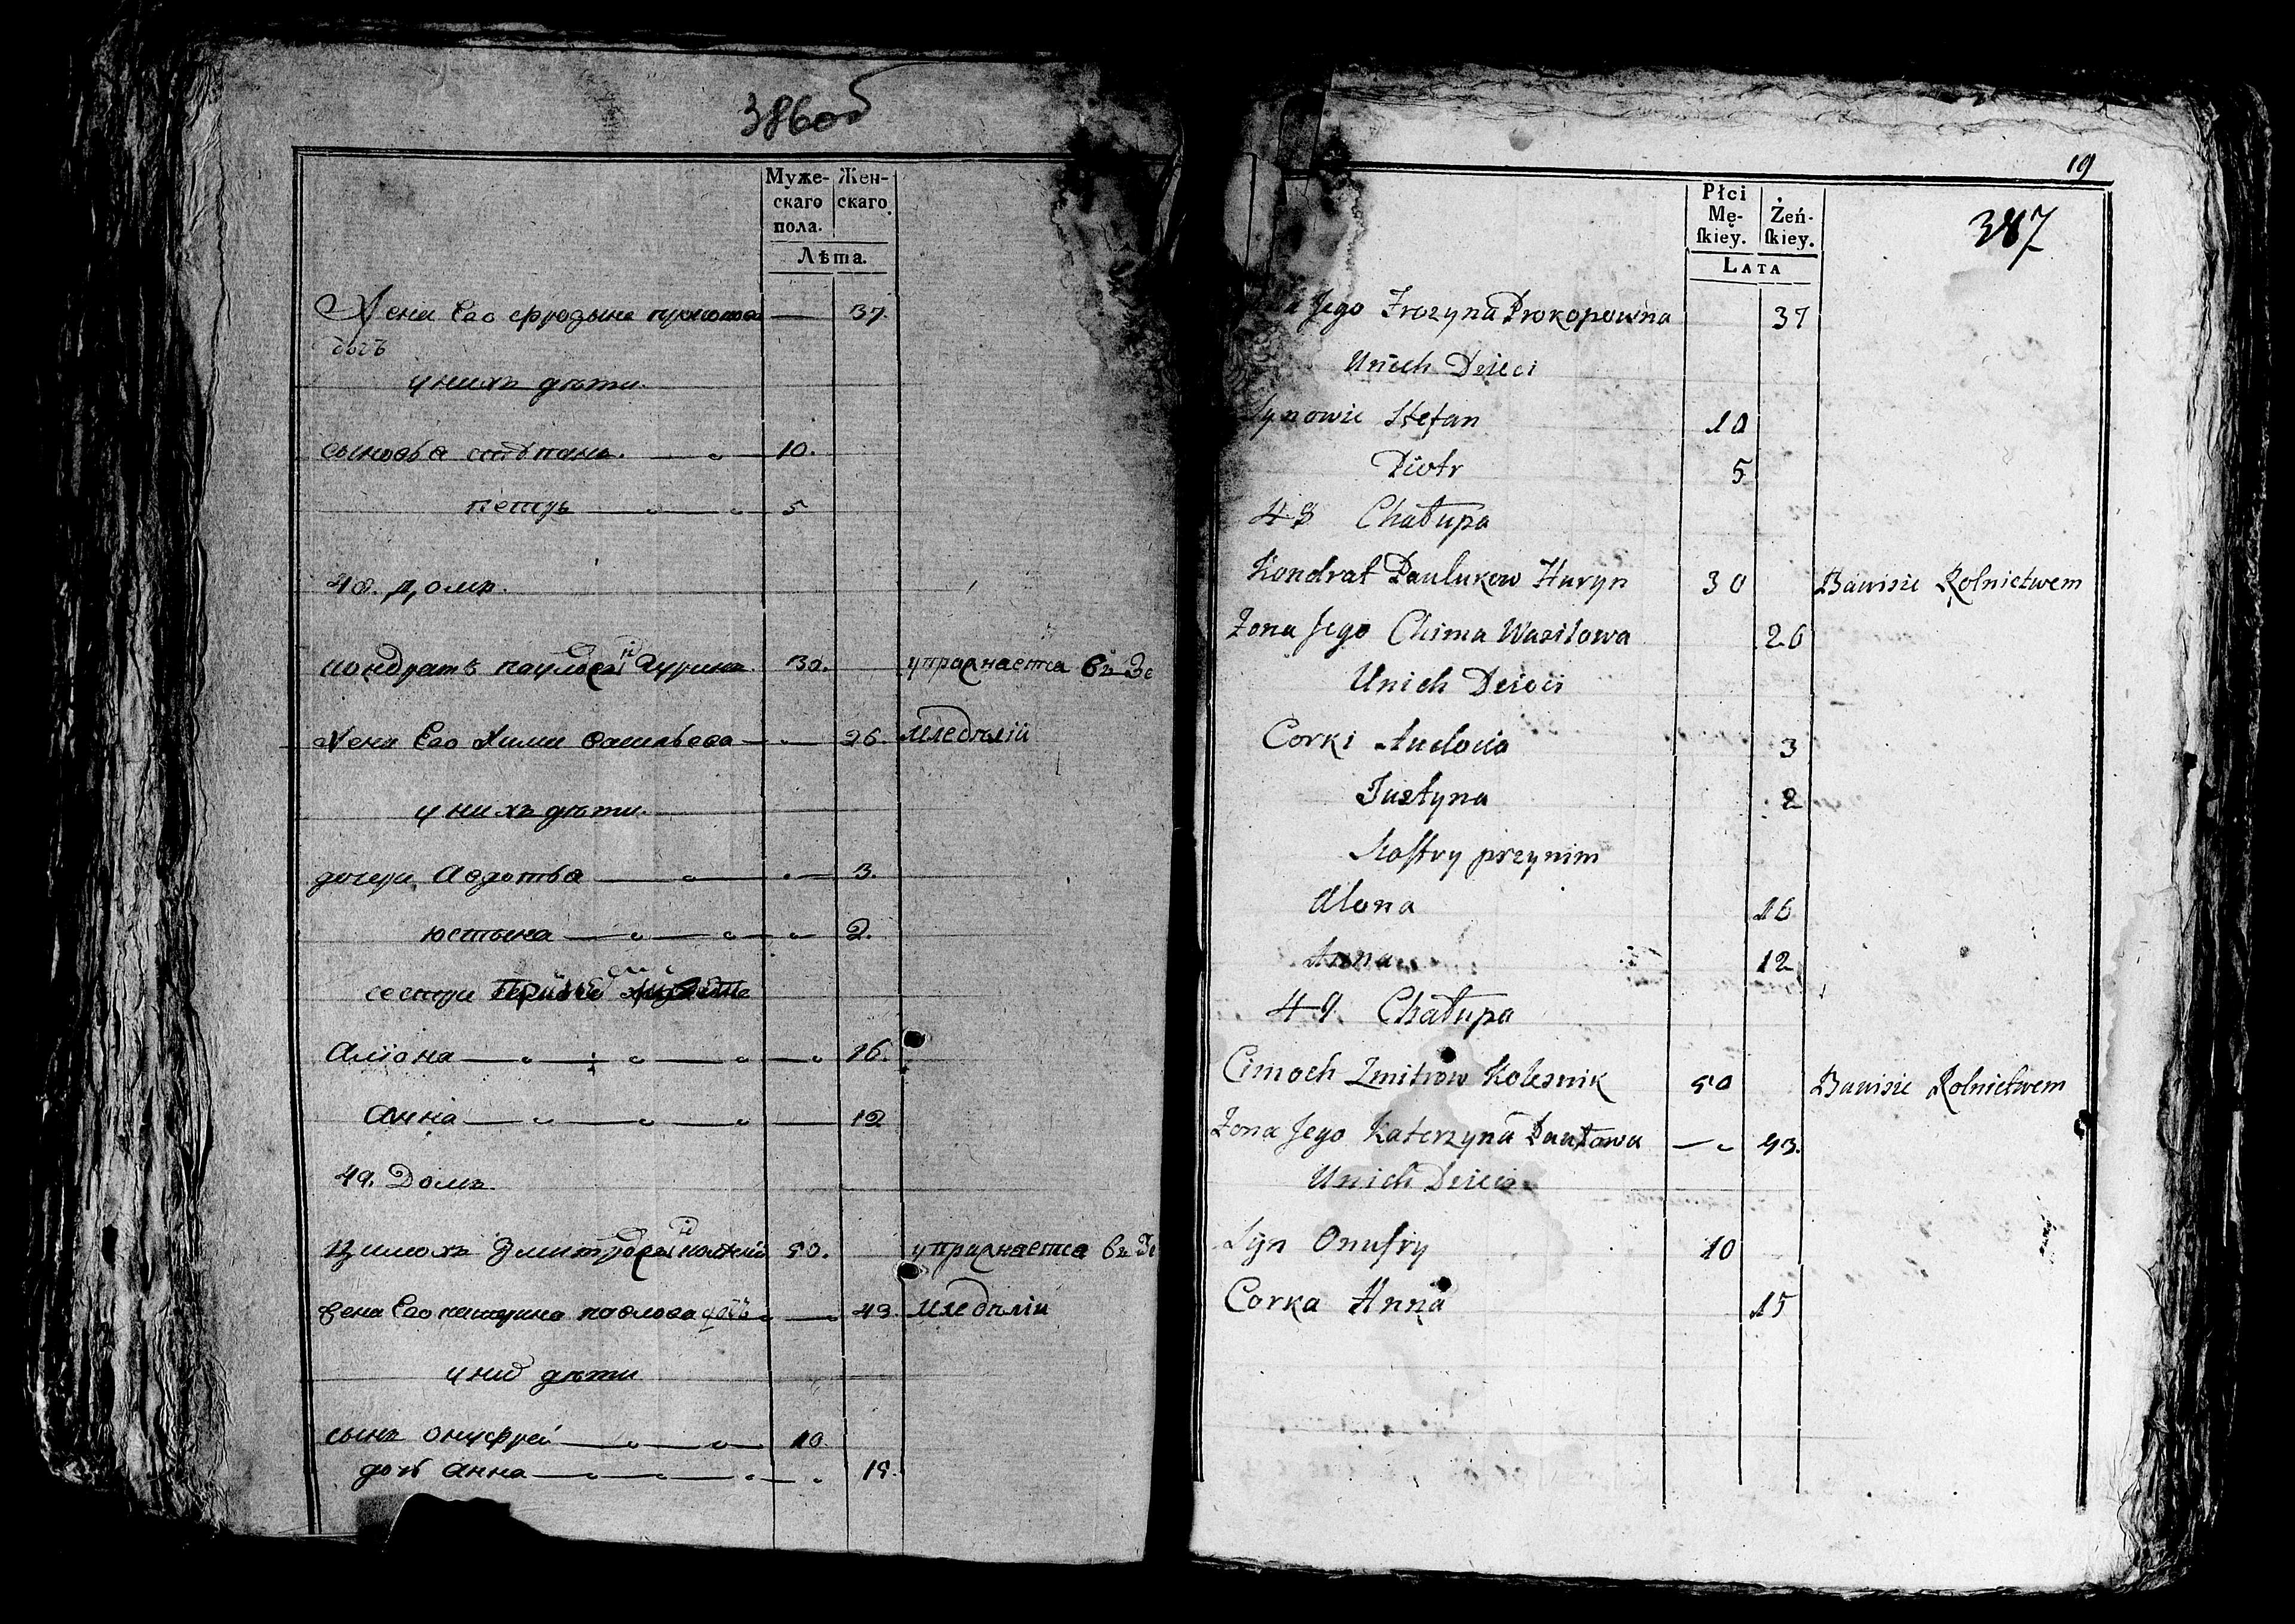 386об
Муже-
скаго
пола.
Жен-
скаго
Лѣта.
Жена Его Фрозына прокопова — 37
дочь
у нихъ дѣти
сыновья стѣпанъ. — 10.
петръ — 5
48. домъ.
кондратъ паулюковъ Гуринъ 30. упражнается въ Зе
Жена Его Хима васильева — 26. мледѣліи
у нихъ дѣти.
дочери Авдотья — 3.
юстына — 2.
сестры
Аліона — 16.
Анна — 12
49. Домъ
Цимохъ Змитровъ 50. упражнается въ Зе
Жена Его катерина павлова дочь — 43. мледѣліи
у них дѣти
сынъ онуфрей — 10
дочь анна — 15.
19
387
Płci
Mę-
ſkiey.
Żeń-
ſkiey.
LATA
Jego Frozyna Prokopowna 37
Unich Dzieci
Synowie Stefan 10
Piotr 5
48 Chałupa
Kondrat Paulukow Huryn 30 Bawisie Rolnictwem
Zona Jego Chima Wasilowa 26
Unich Dzieci
Corki Audocia 3
Justyna 2
Siostry przynim
Alona 16
Anna 12
49 Chałupa
Cimoch Zmitrow Kolesnik 50 Bawisie Rolnictwem
Zona Jego Katerzyna Pawłowa — 43.
Unich Dzieci
Syn Onufry 10
Corka Anna 15